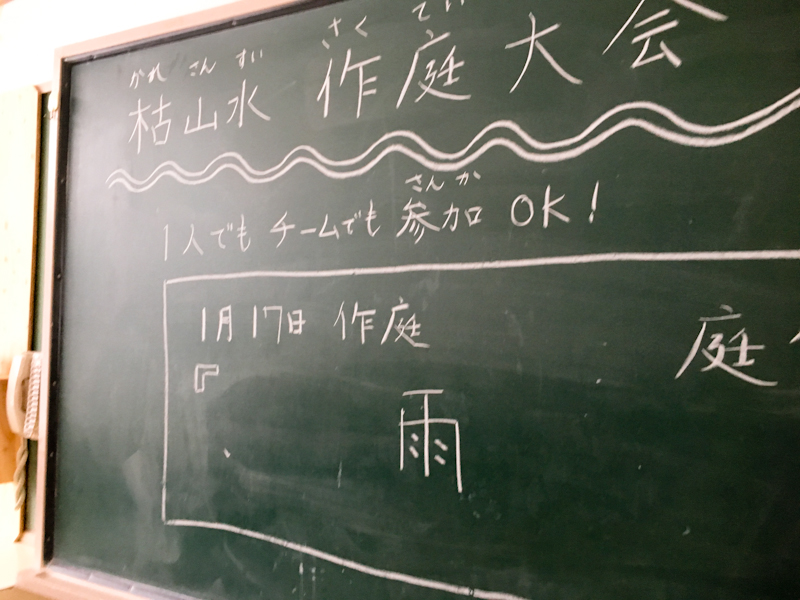 かれ さん すい さく てい
枯山水 作庭大会
さん か
1人でも チームでも 参加 OK!
1月17日 作庭
庭
『
雨